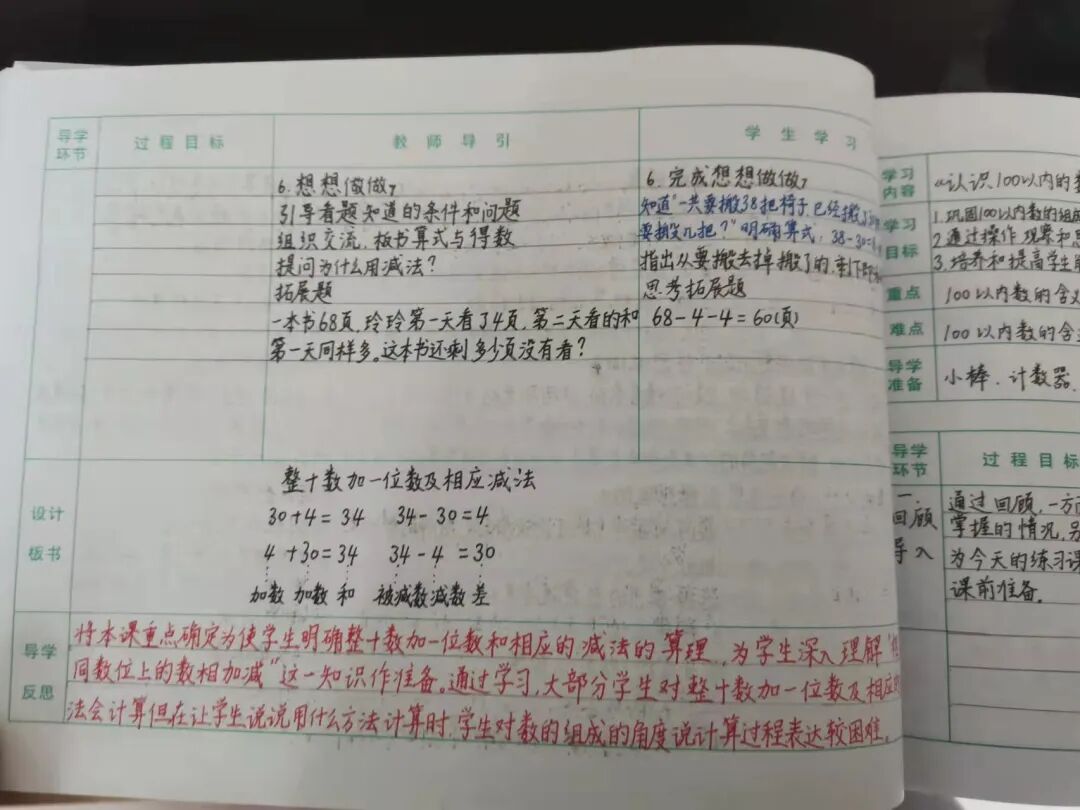 导学环节 过程目标 教师导引 学生学习
6.想想做做7
引导看题知道的条件和问题
组织交流,板书算式与得数
提问为什么用减法?
拓展题
一本书68页,玲玲第一天看了4页,第二天看的和
第一天同样多。这本书还剩多少页没有看?
6.完成想想做做7
知道"一共要搬38把椅子,已经搬了
要搬几把?"明确算式:38-30=
指出从要搬去掉搬了的,剩下
思考拓展题
68-4-4=60(页)
设计板书
整十数加一位数及相应减法
30+4=34 34-30=4
4+30=34 34-4=30
加数 加数 和 被减数 减数 差
导学反思
将本课重点确定为使学生明确整十数加一位数和相应的减法的算理,为学生深入理解"相
同数位上的数相加减"这一知识作准备。通过学习,大部分学生对整十数加一位数及相应的
法会计算但在让学生说说用什么方法计算时,学生对数的组成的角度说计算过程表达较困难。
学习内容 《认识100以内的
学习目标
1.巩固100以内数的组成
2.通过操作、观察和
3.培养和提高学生
重点 100以内数的含义
难点 100以内数的含
导学准备 小棒、计数器、
导学环节 过程目标
一、回顾导入
通过回顾,一方
掌握的情况,另
为今天的练习课
课前准备。